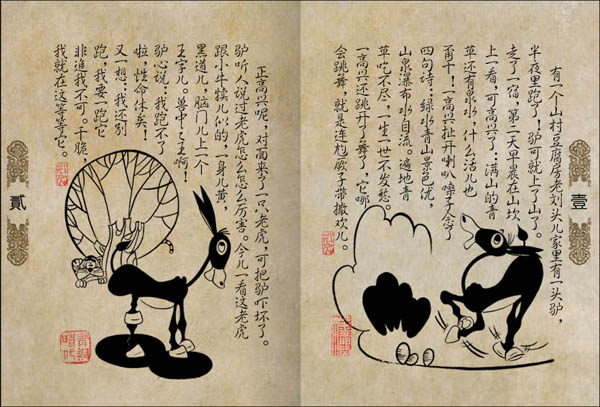 有一个山村豆腐房老刘头儿家里有一头驴，
半夜里跑了，驴可就上了山了。
走了一宿，第二天早晨在山坎
上一看，可高兴了：满山的青
草还有泉水，什么活儿也
甭干！一高兴扯开喇叭嗓子念了
四句诗：绿水青山景色优，
山泉瀑布水自流。遍地青
草吃不尽，一生一世不发愁。
一高兴还跳开了舞了，它哪
会跳舞，就是连尥蹶子带撒欢儿。
壹
正高兴呢，对面来了一只老虎，可把驴吓坏了。
驴听人说过老虎怎么怎么厉害。今儿一看这老虎
跟小牛犊儿似的，一身儿黄，
黑道儿，脑门儿上一个
王字儿。兽中之王啊！
驴心说：我跑不了
啦，性命休矣！
又一想，我还别
跑，我要一跑它
非追我不可。干脆，
我就在这等等它。
貳